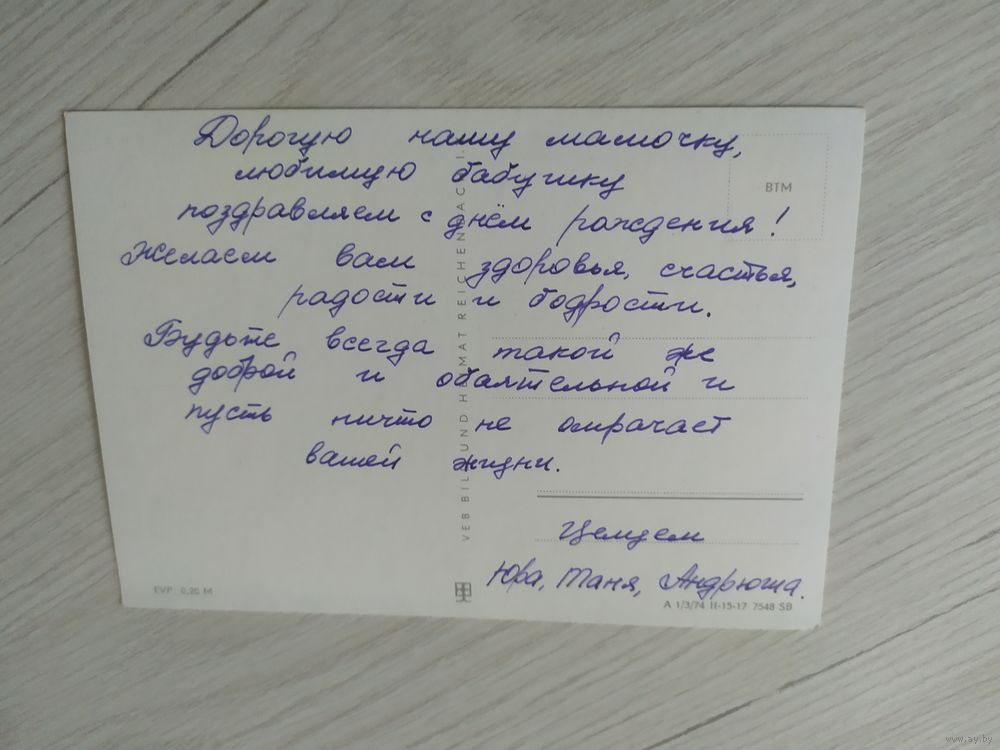 Дорогую нашу мамочку,
любимую бабушку
поздравляем с днём рождения!
Желаем вам здоровья, счастья,
радости и бодрости.
Будьте всегда такой же
доброй и обаятельной и
пусть ничто не омрачает
вашей жизни.
Целуем
Юра, Таня, Андрюша.
BTM
VEB BILD UND HEIMAT REICHENBACH I.
EVP: 0,20 M
A 1/3/74 II-15-17 7548 SB
www.ay.by